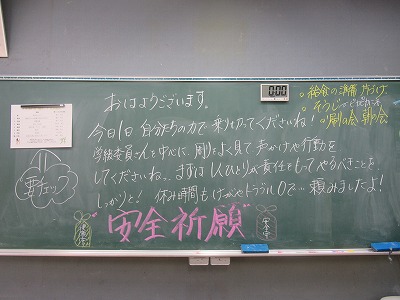 おはようございます。
今日1日 自分たちの力で 乗り切ってくださいね!
学級委員さんを中心に、周りをよく見て 声かけや行動を
してくださいね。まずは1人ひとりが責任をもってやるべきことを、
しっかりと! 休み時間もけがやトラブル0で… 頼みましたよ!
安全祈願
要チェック
0:00
給食の準備 片づけ
そうじ
帰りの会 朝の会